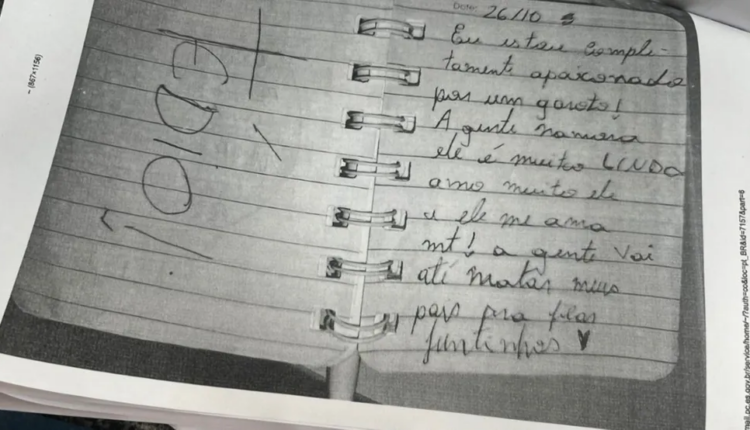 Date: 26/10
Eu estou comple-
tamente apaixonada
por um garoto!
A gente namora
ele é muito LINDO
amo muito ele
e ele me ama
mt! a gente vai
até matar meus
pais pra ficar
juntinhos
TÉDIO!
- (867×1156)